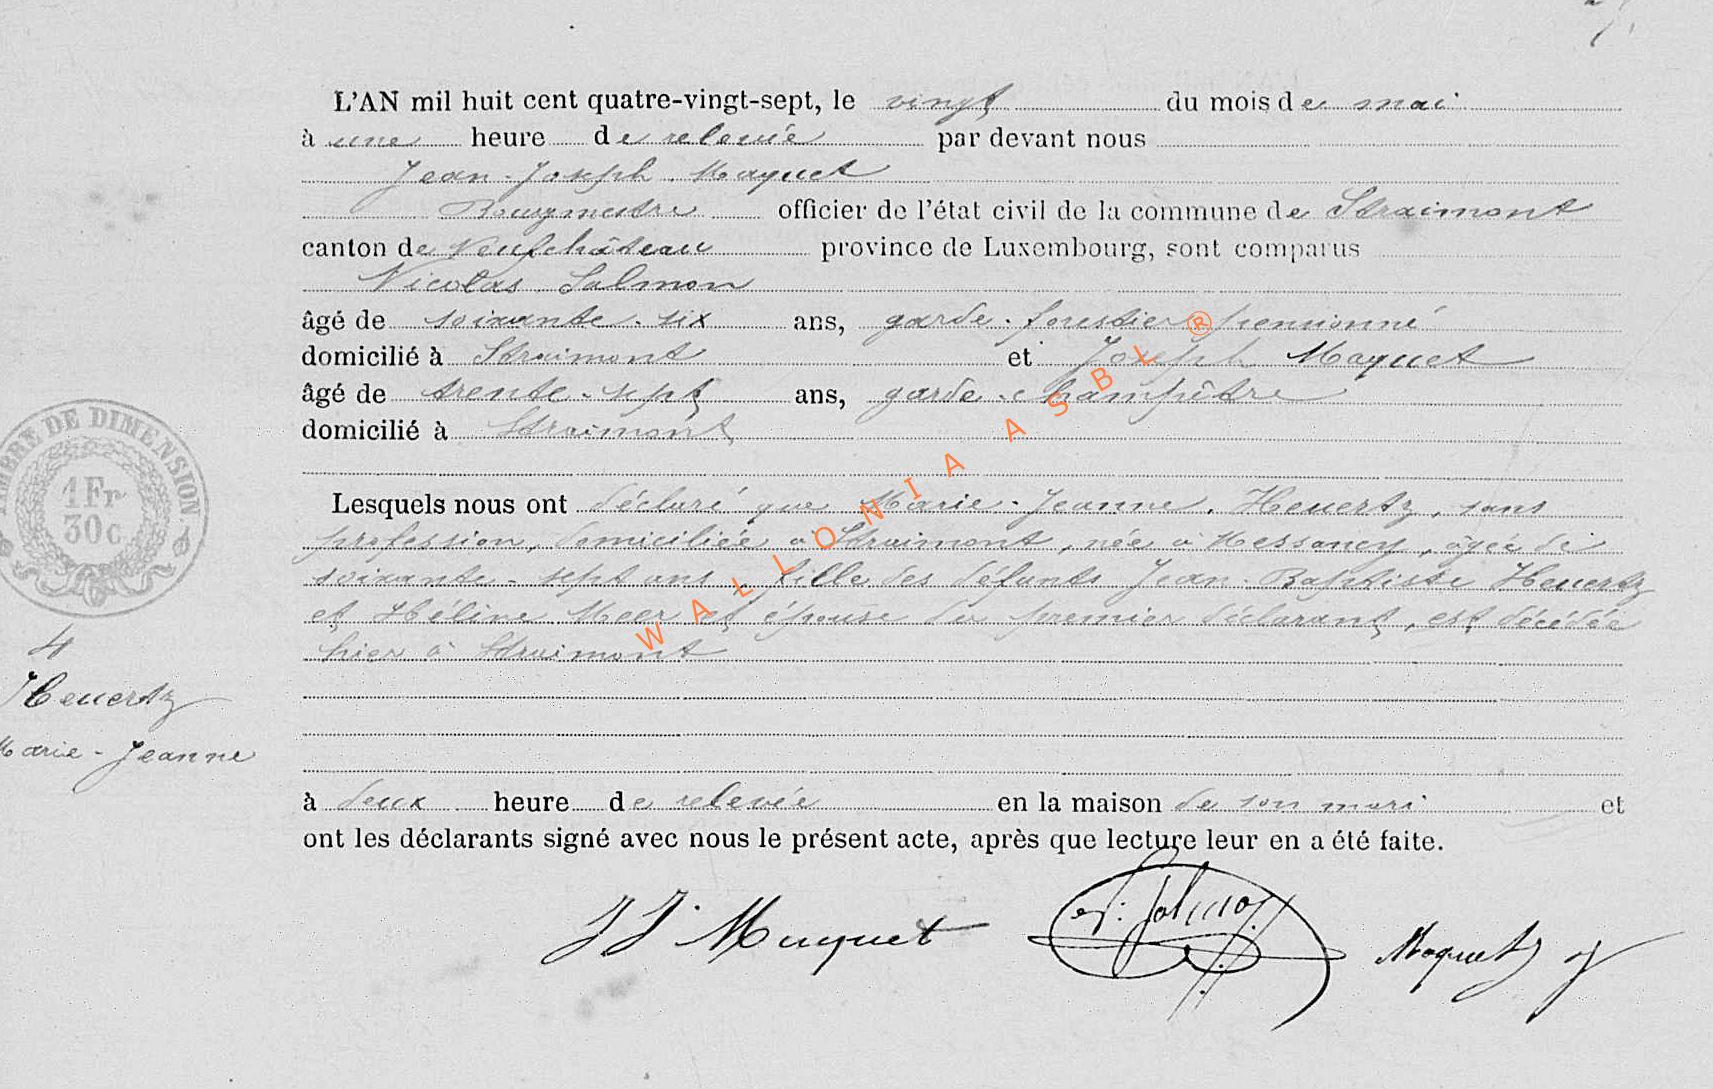 L'AN mil huit cent quatre-vingt-sept, le vingt du mois de mai
à une heure de relevée par devant nous
Jean-Joseph Maquet
Bourgmestre officier de l'état civil de la commune de Straimont
canton de Neufchâteau province de Luxembourg, sont comparus
Nicolas Salmon
âgé de soixante-six ans, garde-forestier pensionné
domicilié à Straimont et Joseph Maquet
âgé de trente-sept ans, garde-champêtre
domicilié à Straimont
Lesquels nous ont déclaré que Marie-Jeanne Heuertz, sans
profession, domiciliée à Straimont, née à Messancy, âgée de
soixante-sept ans, fille des défunts Jean-Baptiste Heuertz
et Hélène Meer et épouse du premier déclarant, est décédée
hier à Straimont
à deux heure de relevée en la maison de son mari et
ont les déclarants signé avec nous le présent acte, après que lecture leur en a été faite.
JJ Maquet Salmon Maquet J
TIMBRE DE DIMENSION
1Fr
30c
4
Heuertz
Marie-Jeanne
WALLONIA ASBL ®